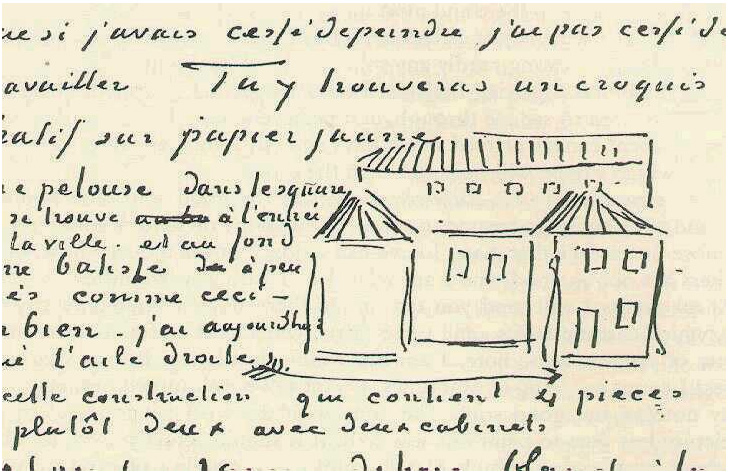 si j'avais cessé de peindre j'ai pas cessé de
availler Tu y trouveras un croquis
hatif sur papier jaune
e pelouse dans le square
se trouve à l'entrée
la ville. et au fond
ne batisse à peu
ès comme ceci -
bien. j'ai aujourdhui
é l'aile droite
cette construction qui contient 4 pieces
plutôt deux avec deux cabinets